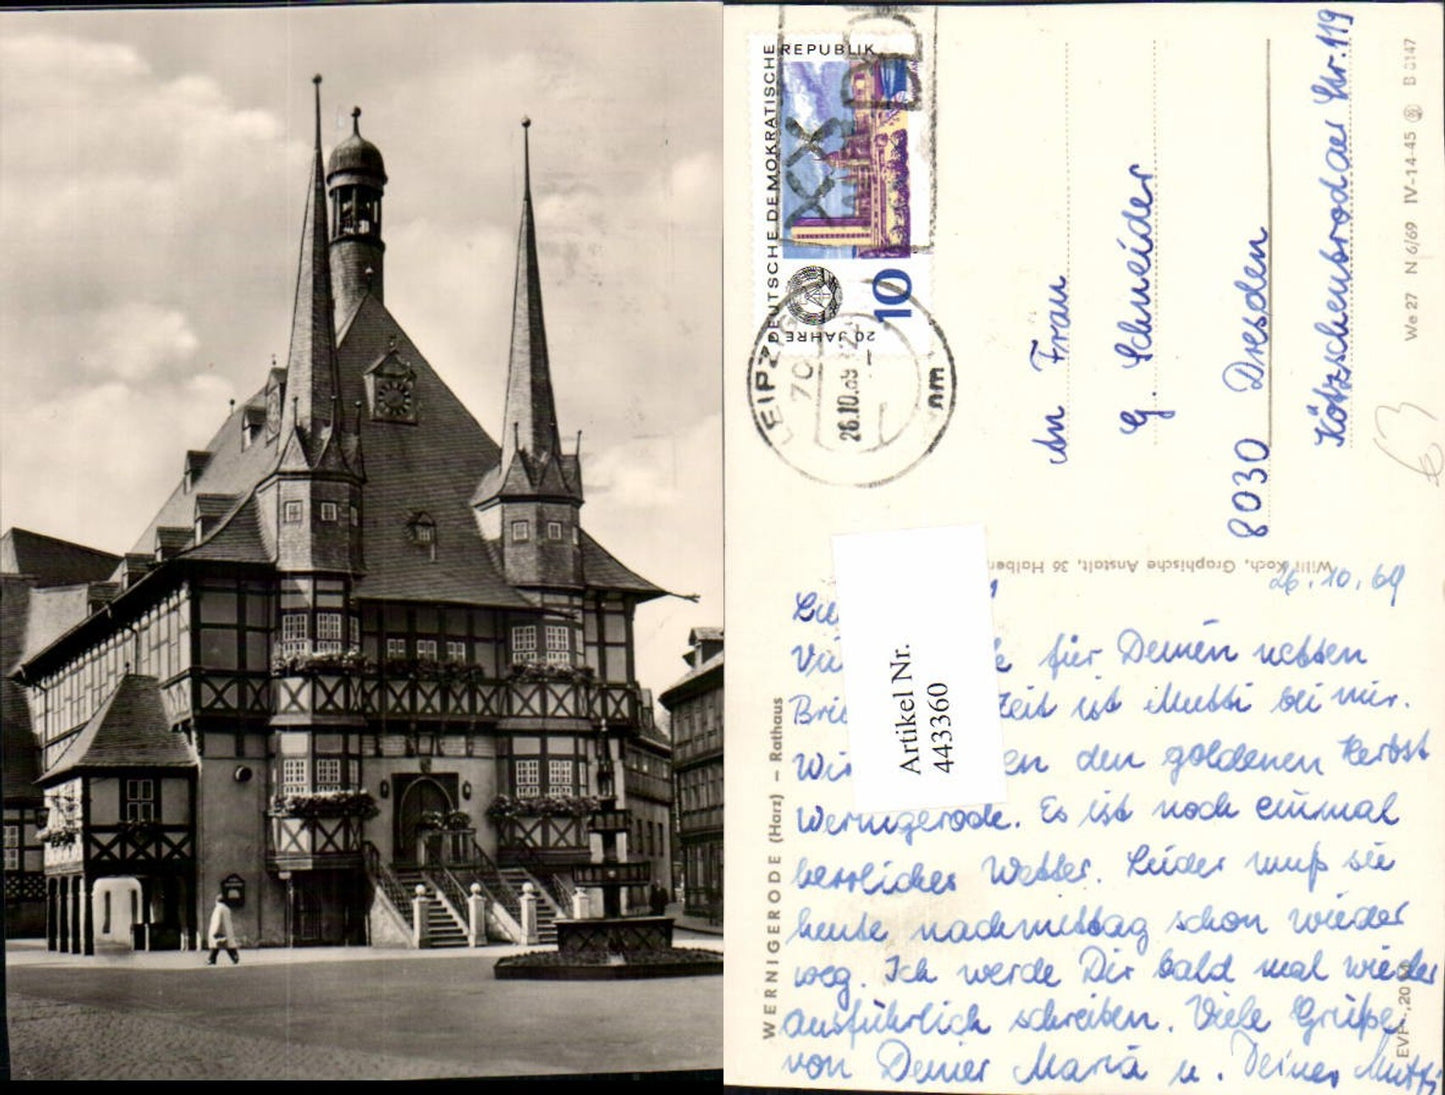 DEUTSCHE DEMOKRATISCHE REPUBLIK
20 JAHRE
10
LEIPZIG
70
26.10.69
An Frau
G. Schneider
8030 Dresden
Kötzschenbrodaer Str. 119
We 27 N 6/69 IV-14-45 B 0147
Willi Koch, Graphische Anstalt, 36 Halber
WERNIGERODE (Harz) – Rathaus
Artikel Nr.
443360
26.10.69
für Deinen netten
Zeit ist Mutti bei mir.
Wir den goldenen Herbst
Wernigerode. Es ist noch einmal
herrliches Wetter. Leider muß sie
heute nachmittag schon wieder
weg. Ich werde Dir bald mal wieder
ausführlich schreiben. Viele Grüße
von Deiner Maria u. Deiner Mutti
EVP -,20